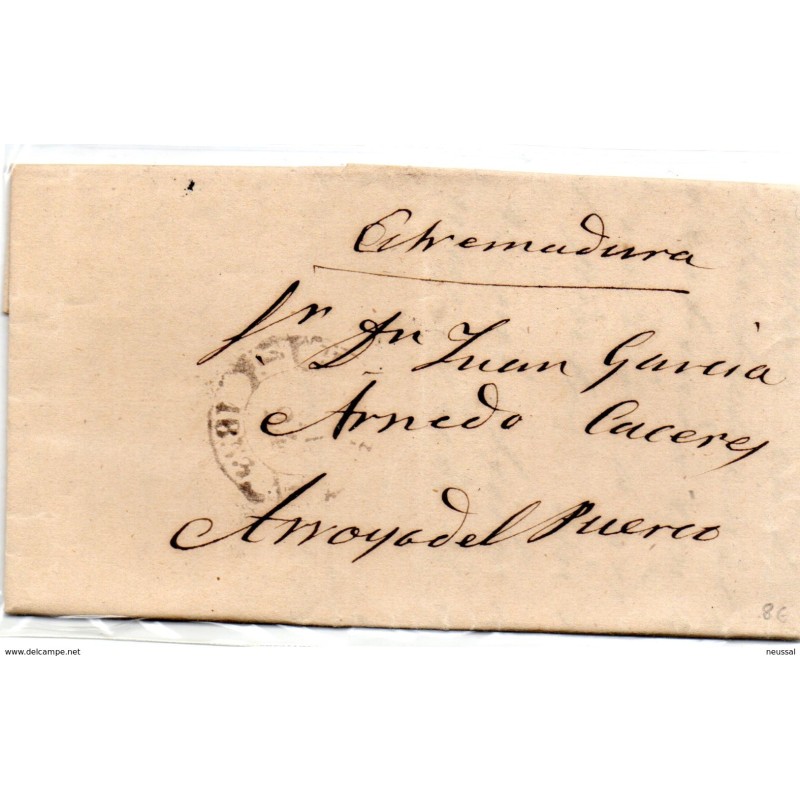 Estremadura
Sr. Dn Juan Garcia
Arnedo Caceres
Arroyo del Puerco
18
8€
www.delcampe.net
neussal